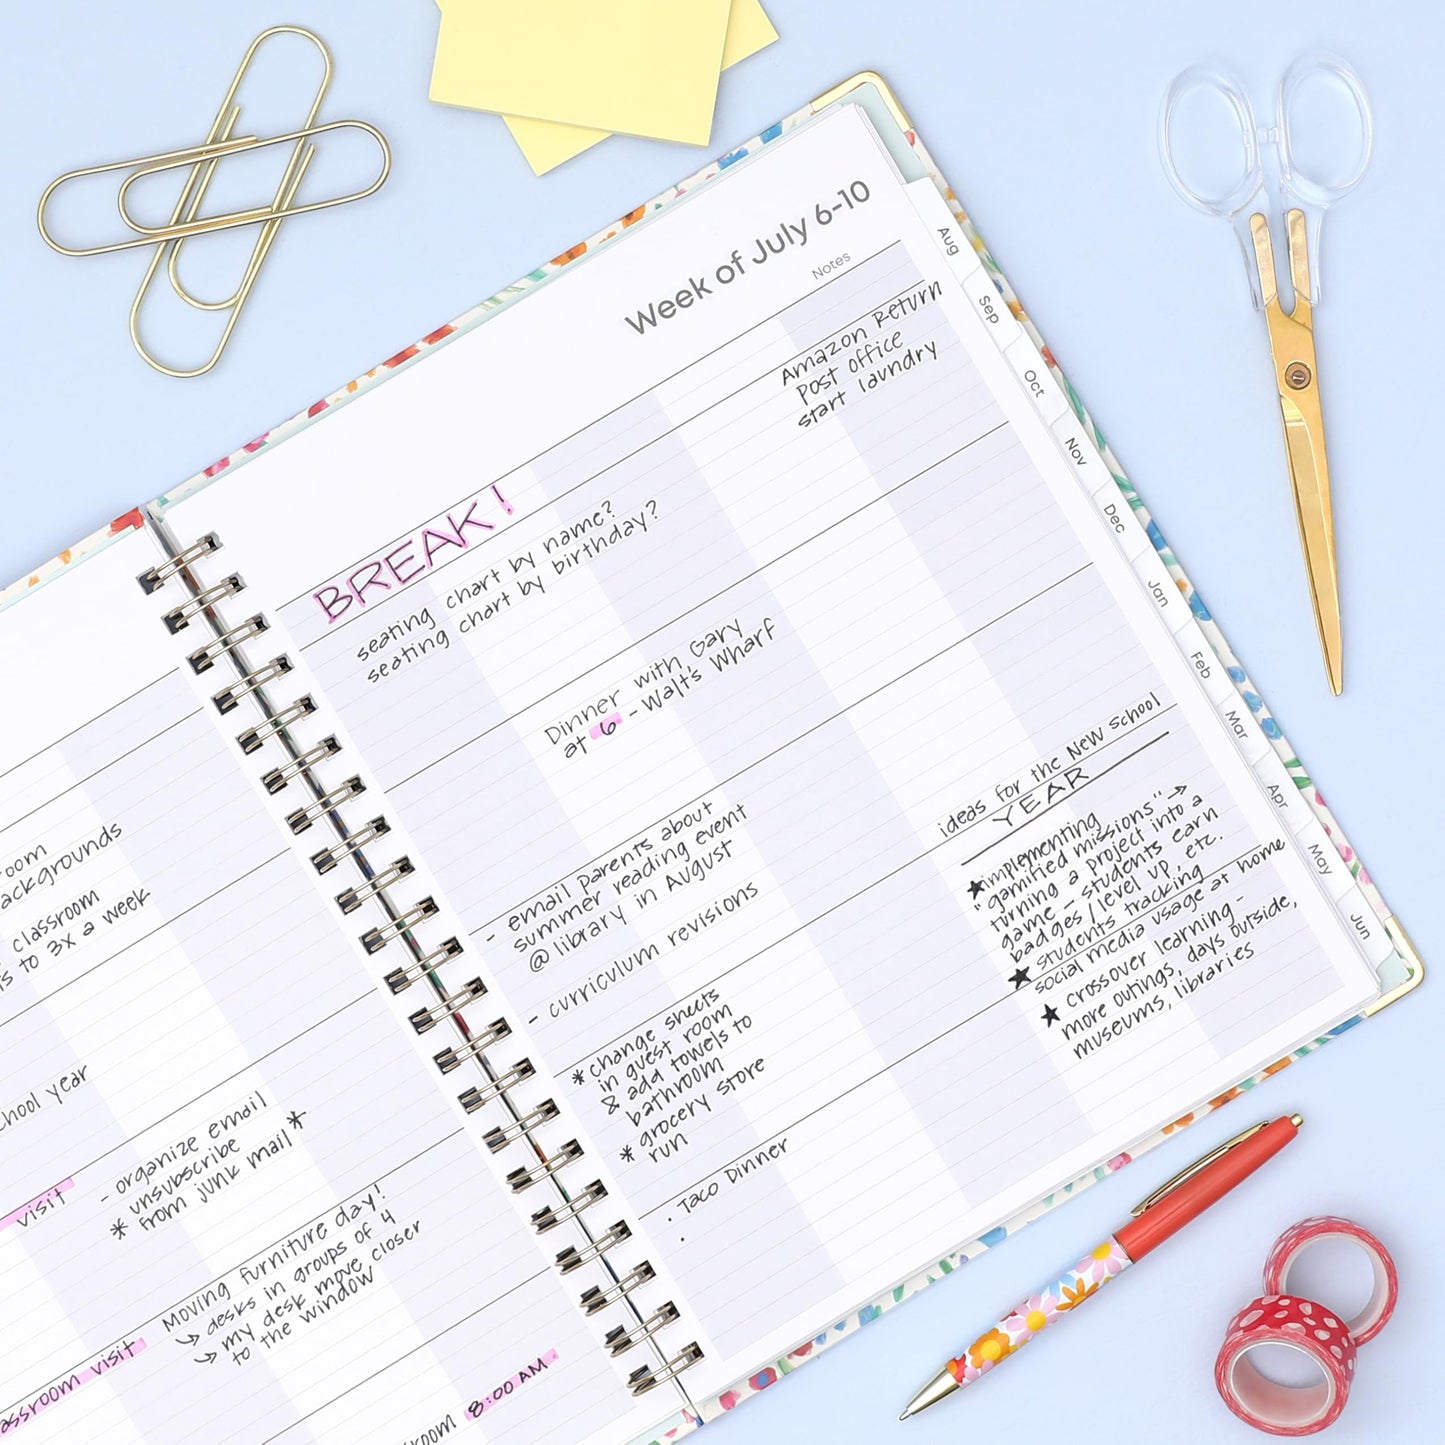 Week of July 6-10
Notes
Aug
Sep
Oct
Nov
Dec
Jan
Feb
Mar
Apr
May
Jun
BREAK!
seating chart by name?
seating chart by birthday?
Amazon Return
Post office
start laundry
Dinner with Gary
at 6 - Walt's Wharf
- email parents about
summer reading event
@ library in August
- curriculum revisions
ideas for the New School
YEAR
★ implementing
"gamified missions" →
turning a project into a
game - students earn
badges/level up, etc.
★ students tracking
social media usage at home
★ crossover learning -
more outings, days outside,
museums, libraries
* change sheets
in guest room
& add towels to
bathroom
* grocery store
run
. Taco Dinner
.
room
ackgrounds
classroom
to 3x a week
chool year
visit
- organize email
unsubscribe
* from junk mail *
Moving furniture day!
↳ desks in groups of 4
↳ my desk move closer
to the window
assroom visit
sroom 8:00 AM